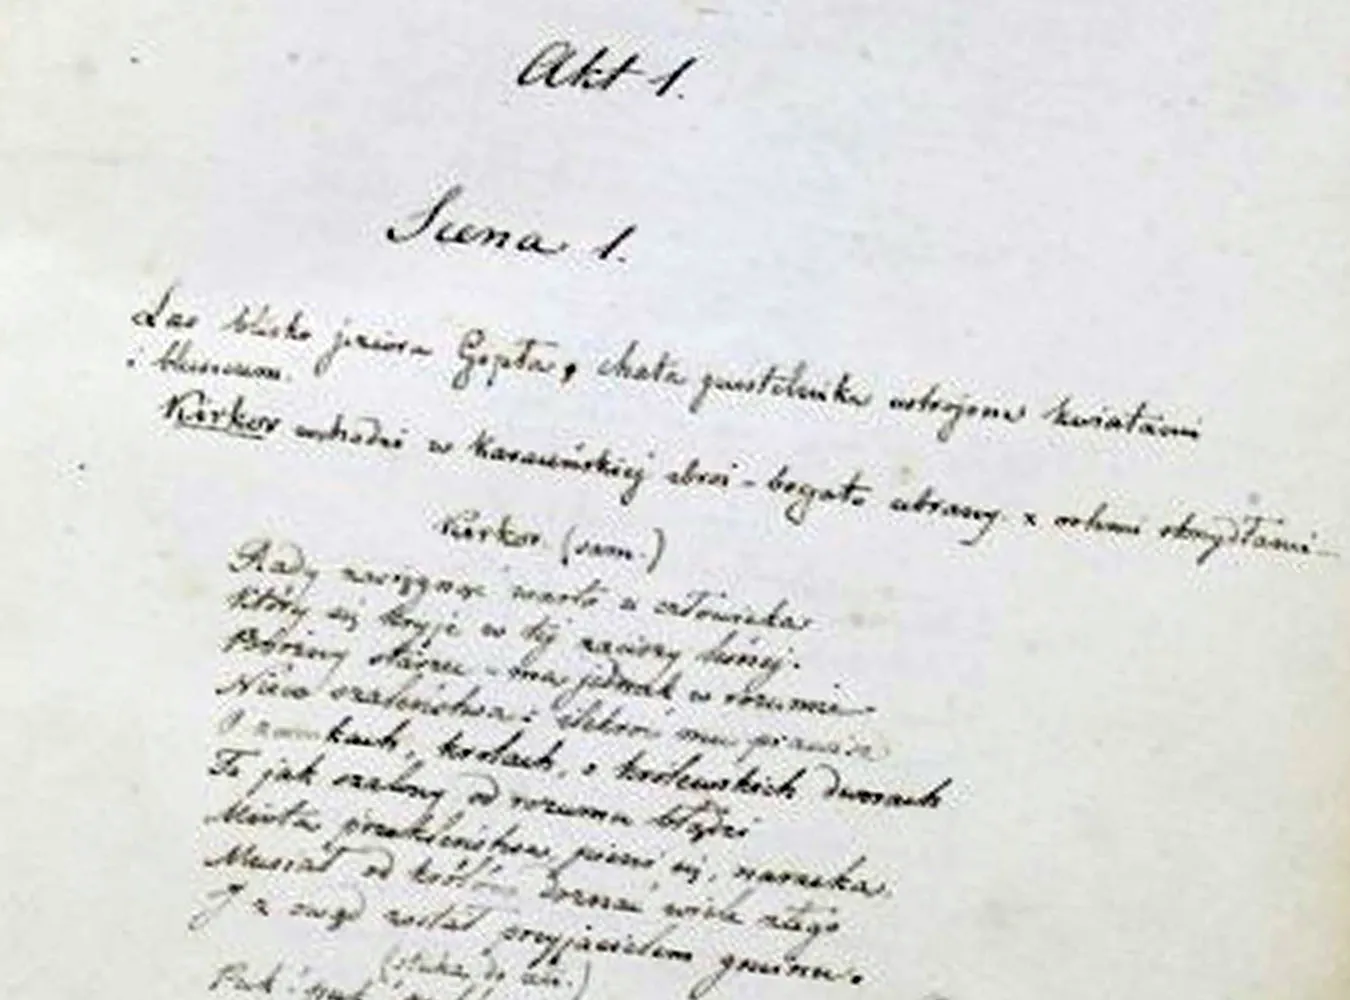 Akt 1.
Scena 1.
Las blisko jeziora Gopła, chata pustelnika ustrojona kwiatami
i bluszczem.
Kirkor wchodzi w karaceńskiej zbroi - bogato ubrany z orlemi skrzydłami -
Kirkor (sam.)
Rady zasięgnąć warto u człowieka
Który się kryje w tej zaciszy leśnej.
Pobożny starzec - ma jednak w rozumie
Nieco szaleństwa: ilekroć mu prawię
O zamkach, królach, o królewskich dworach
To jak szalony od rozumu błądzi
Miota przekleństwa, pieni się, narzeka.
Musiał od królów doznać wiele złego
I z owąd został przyjacielem gminu.
(stuka do celi.)
Puk!